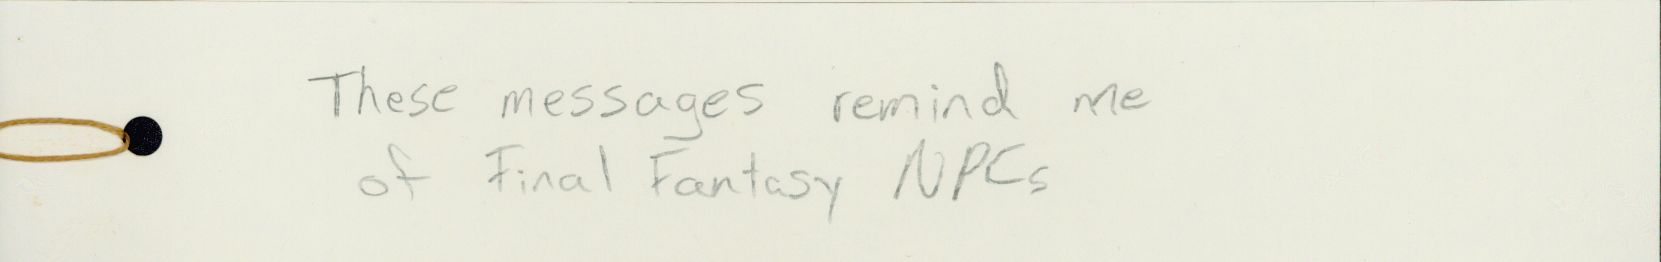 These messages remind me
of Final Fantasy NPCs